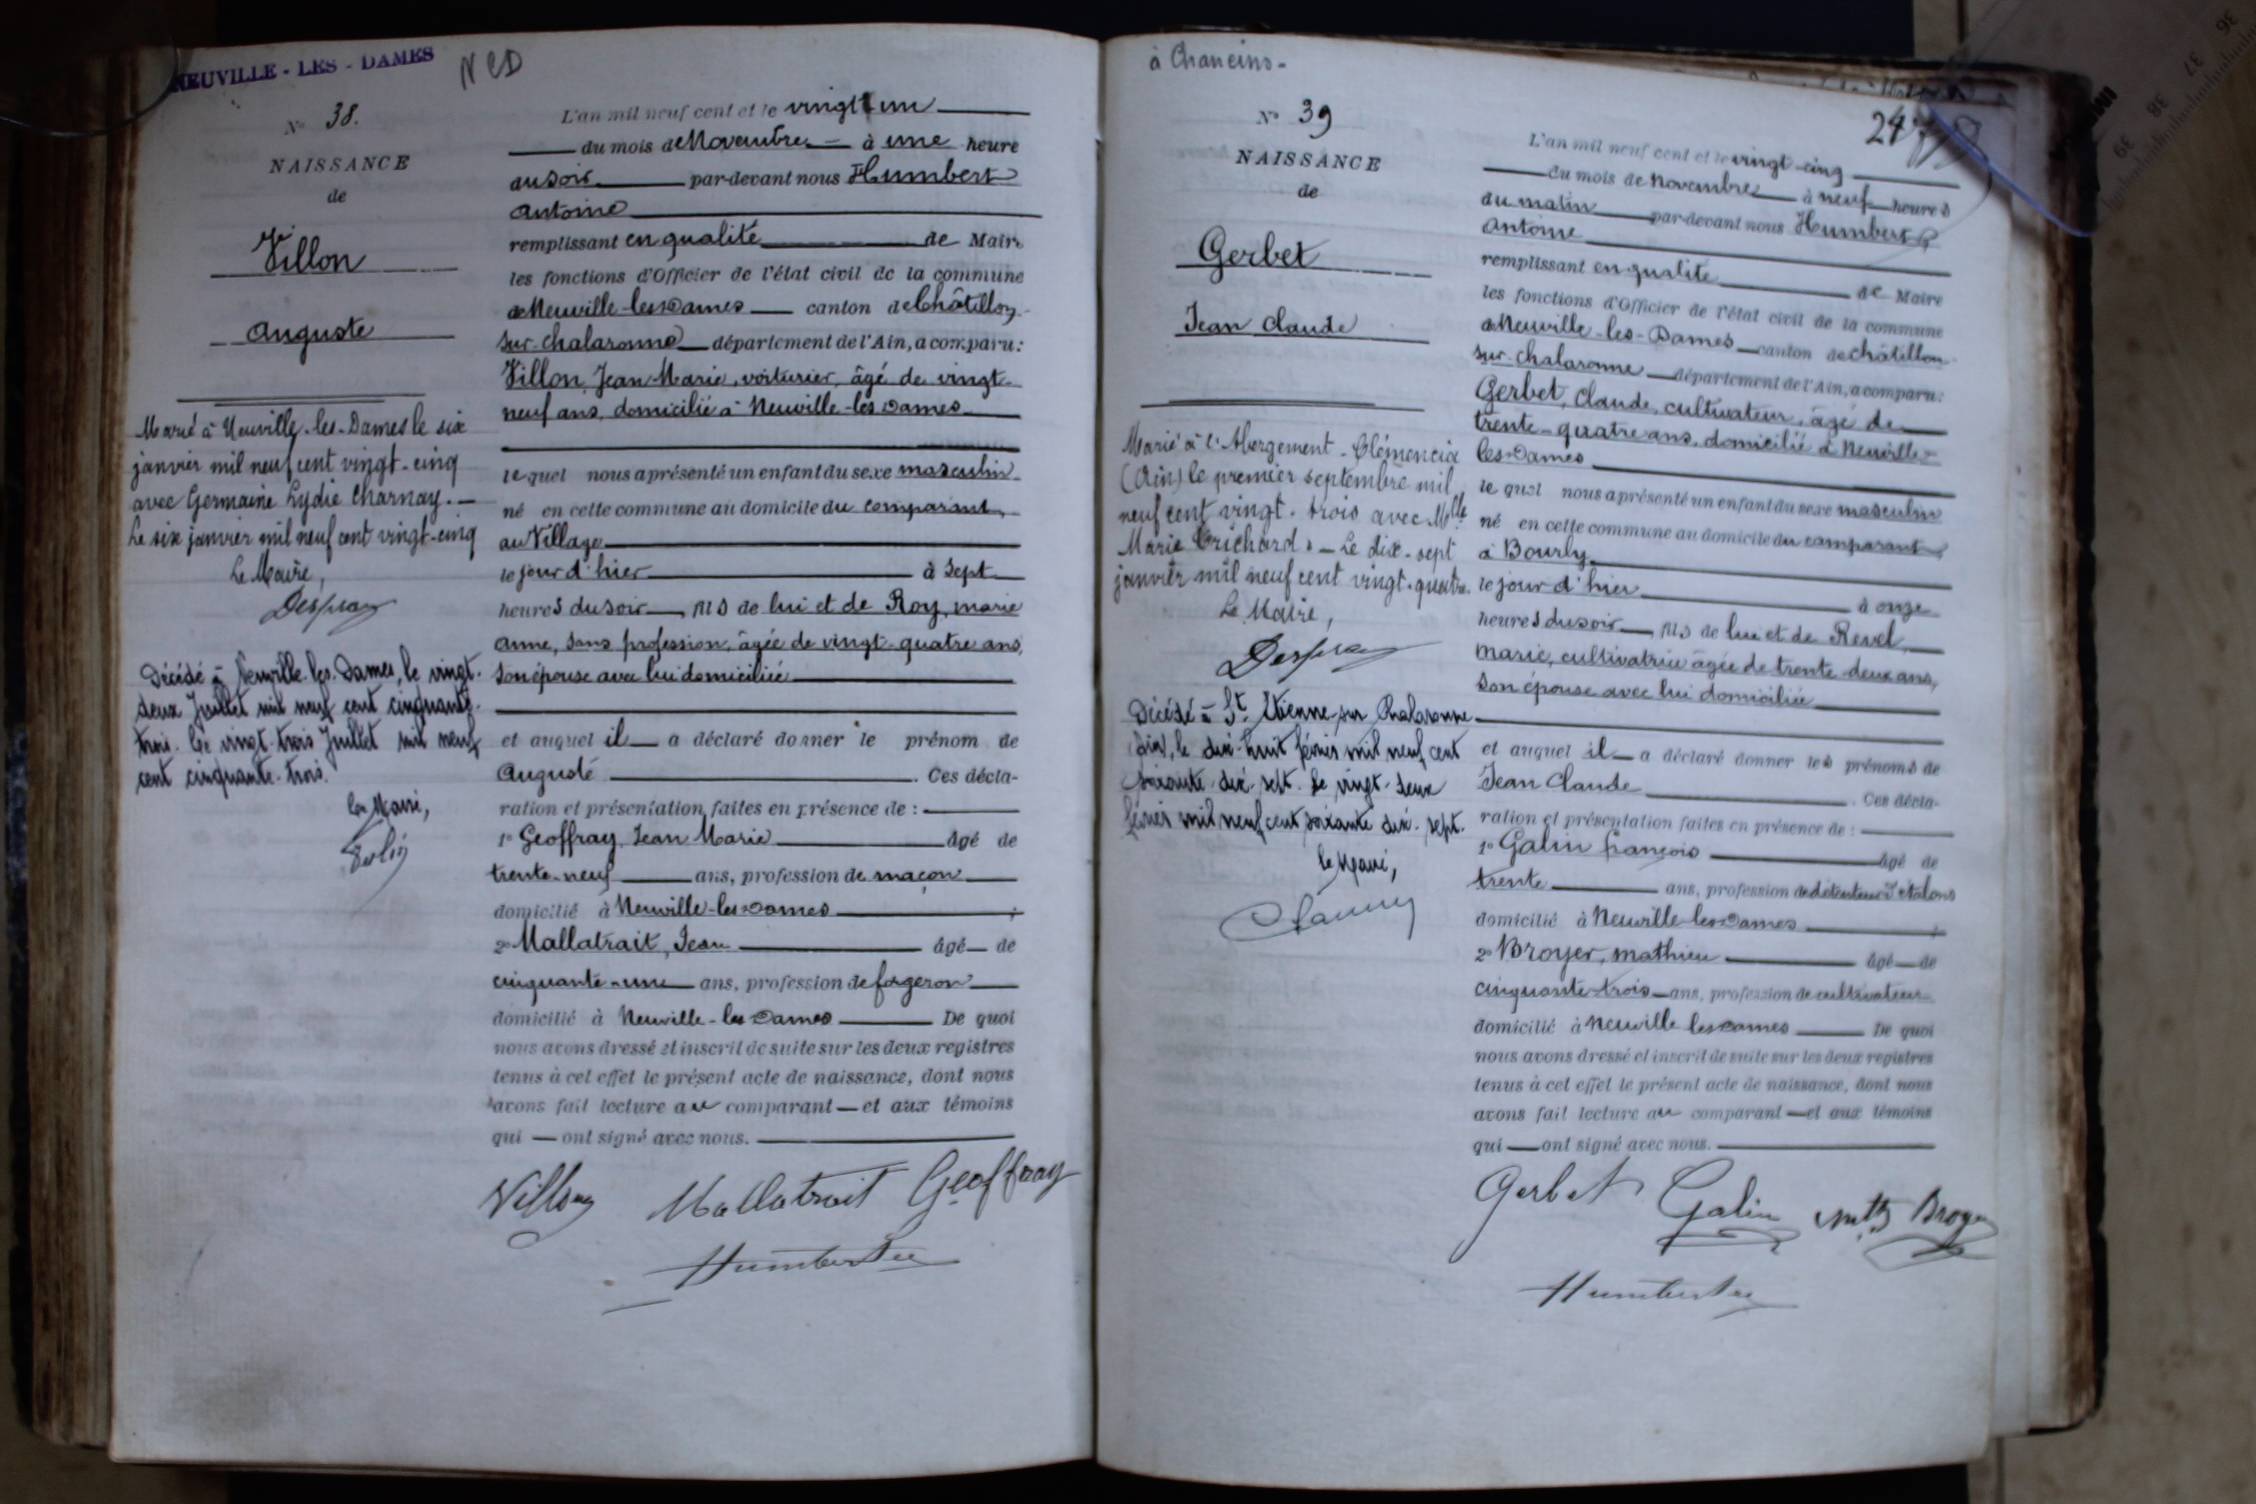 NEUVILLE - LES - DAMES
NCD
N° 38.
NAISSANCE
de
Villon
Auguste
Marié à Neuville-les-Dames le six
janvier mil neuf cent vingt-cinq
avec Germaine Lydie Charnay. —
Le six janvier mil neuf cent vingt-cinq
Le Maire,
Décédé à Neuville-les-Dames, le vingt-
deux Juillet mil neuf cent cinquante-
trois. Le vingt-trois Juillet mil neuf
cent cinquante-trois.
Le Maire,
L'an mil neuf cent et le vingt un
du mois de Novembre à une heure
du soir par-devant nous Humbert
Antoine
remplissant en qualité de Maire
les fonctions d'Officier de l'état civil de la commune
de Neuville-les-Dames canton de Châtillon-
sur-Chalaronne département de l'Ain, a comparu:
Villon Jean Marie, voiturier, âgé de vingt-
neuf ans, domicilié à Neuville-les-Dames
lequel nous a présenté un enfant du sexe masculin
né en cette commune au domicile du comparant
au Village
le jour d'hier à sept
heures du soir, fils de lui et de Roy, Marie
Anne, sans profession, âgée de vingt-quatre ans,
son épouse avec lui domiciliée
et auquel il a déclaré donner le prénom de
Auguste. Ces décla-
ration et présentation faites en présence de :
1° Geoffray, Jean Marie âgé de
trente-neuf ans, profession de maçon
domicilié à Neuville-les-Dames ;
2° Mallatrait, Jean âgé de
cinquante-un ans, profession de forgeron
domicilié à Neuville-les-Dames De quoi
nous avons dressé et inscrit de suite sur les deux registres
tenus à cet effet le présent acte de naissance, dont nous
avons fait lecture au comparant — et aux témoins
qui — ont signé avec nous.
Villon Mallatrait Geoffray
Humbert
à Chaneins-
24
N° 39
NAISSANCE
de
Gerbet
Jean Claude
Marié à l'Abergement-Clémencia
(Ain) le premier septembre mil
neuf cent vingt-trois avec Mlle
Marie Trichard. — Le dix-sept
janvier mil neuf cent vingt-quatre.
Le Maire,
Décédé à St Etienne-sur Chalaronne
(Ain), le dix-huit février mil neuf cent
soixante-dix-sept. Le vingt-deux
février mil neuf cent soixante dix-sept.
Le Maire,
L'an mil neuf cent et le vingt-cinq
du mois de Novembre à neuf heures
du matin par-devant nous Humbert
Antoine
remplissant en qualité de Maire
les fonctions d'Officier de l'état civil de la commune
de Neuville-les-Dames canton de Châtillon-
sur-Chalaronne département de l'Ain, a comparu:
Gerbet, Claude, cultivateur, âgé de
trente-quatre ans, domicilié à Neuville-
les-Dames
lequel nous a présenté un enfant du sexe masculin
né en cette commune au domicile du comparant
à Bourly
le jour d'hier à onze
heures du soir, fils de lui et de Revel,
Marie, cultivatrice âgée de trente-deux ans,
son épouse avec lui domiciliée
et auquel il a déclaré donner les prénoms de
Jean Claude. Ces décla-
ration et présentation faites en présence de :
1° Galin françois âgé de
trente ans, profession de détenteur d'étalons
domicilié à Neuville-les-Dames ;
2° Broyer, Mathieu âgé de
cinquante-trois ans, profession de cultivateur
domicilié à Neuville les Dames De quoi
nous avons dressé et inscrit de suite sur les deux registres
tenus à cet effet le présent acte de naissance, dont nous
avons fait lecture au comparant — et aux témoins
qui — ont signé avec nous.
Gerbet Galin Broyer
Humbert
36
37
38
39